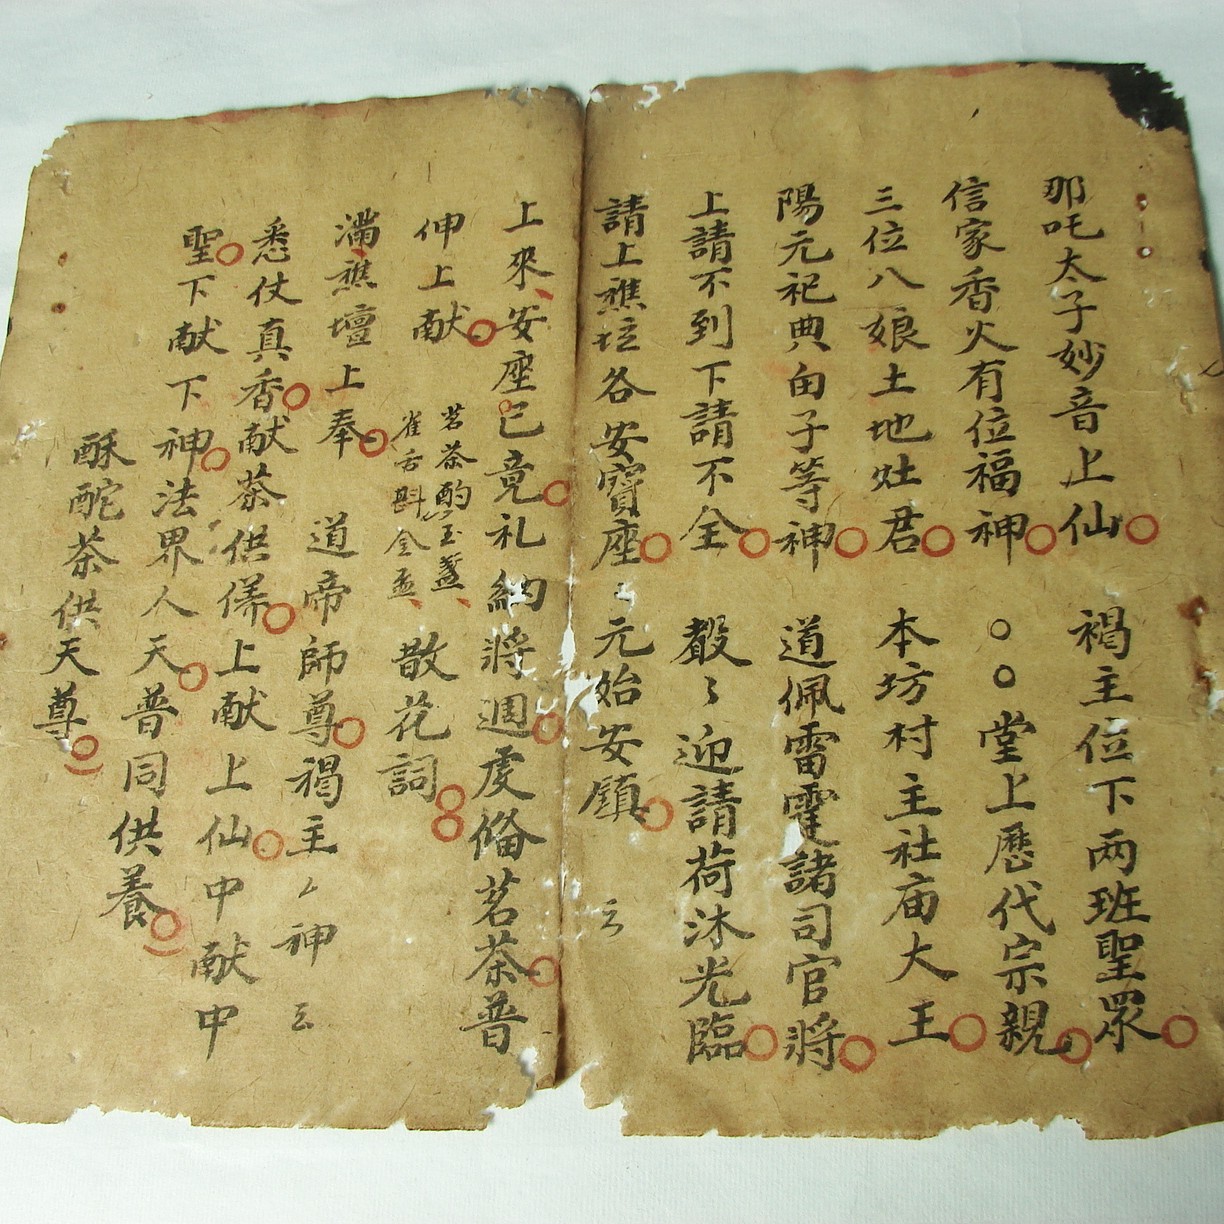 那吒太子妙音上仙 褐主位下两班聖眾
信家香火有位福神 〇〇堂上歷代宗親
三位八娘土地灶君 本坊村主社庙大王
陽元祀典由子等神 道佩雷霆諸司官將
上請不到下請不全 聲〻迎請荷沐光臨
請上醮坛各安寶座〻元始安鎮 云
上來安座已竟礼納將週虔俻茗茶普
伸上献 茗茶酌玉盞 雀舌斟金盃 散花詞
滿醮壇上奉 道帝師尊褐主 神 云
悉仗真香献茶供儀上献上仙中献中
聖下献下神法界人天普同供養
酥酡茶供天尊